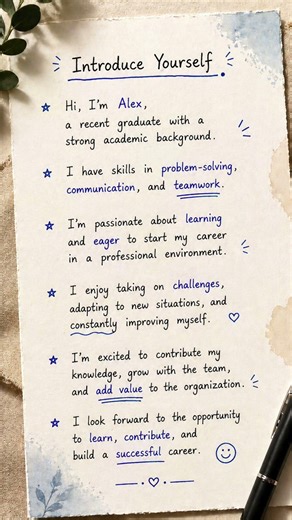 Introduce Yourself
Hi, I'm Alex,
a recent graduate with a
strong academic background.
I have skills in problem-solving,
communication, and teamwork.
I'm passionate about learning
and eager to start my career
in a professional environment.
I enjoy taking on challenges,
adapting to new situations, and
constantly improving myself.
I'm excited to contribute my
knowledge, grow with the team,
and add value to the organization.
I look forward to the opportunity
to learn, contribute, and
build a successful career.